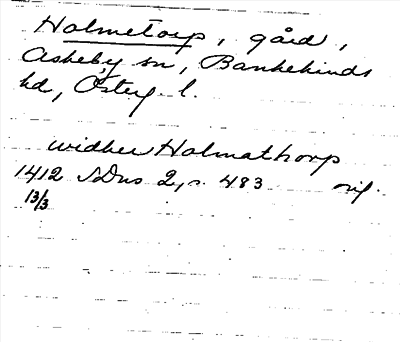 Holmetorp, gård,
Askeby sn, Bankekinds
hd, Östergl.
widher Holmathorp
1412 SDns 2, s. 483 orig.
13/3